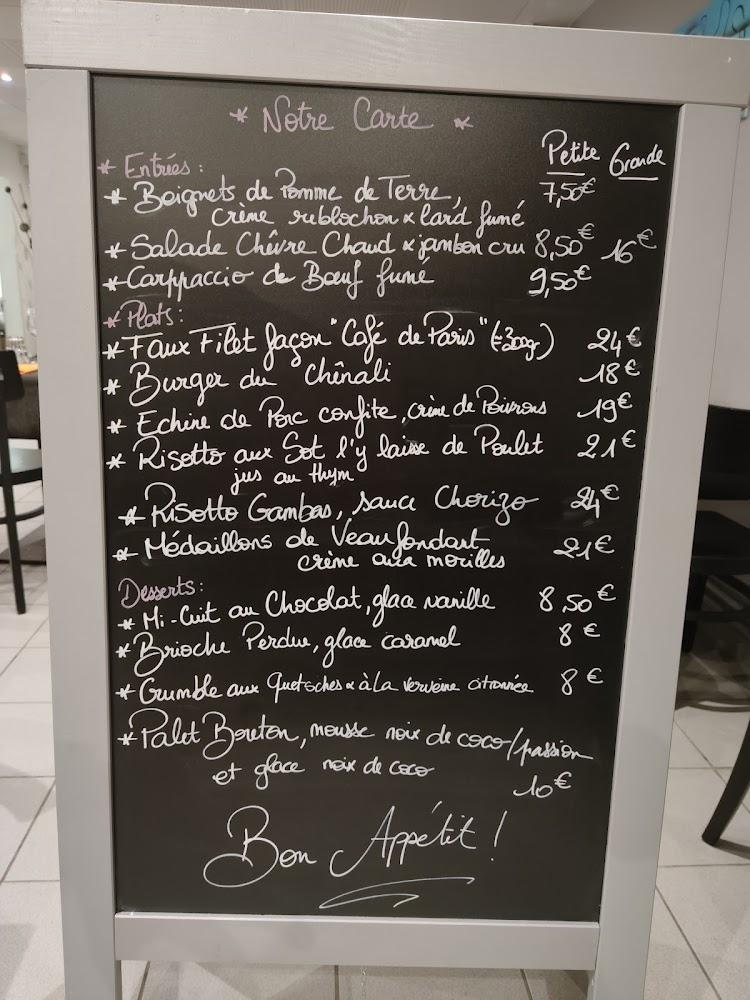 * Notre Carte *
Petite Grande
* Entrées :
* Beignets de Pomme de Terre, 7,50€
crème reblochon & lard fumé
* Salade Chêvre Chaud & jambon cru 8,50€ 16€
* Carppaccio de Bœuf fumé 9,50€
* Plats :
* Faux Filet façon "Café de Paris" (±300gr) 24€
* Burger du Chênali 18€
* Echine de Porc confite, crème de Poivrons 19€
* Risotto aux Sot l'y laisse de Poulet 21€
jus au thym
* Risotto Gambas, sauce Chorizo 24€
* Médaillons de Veau fondant 21€
crème aux morilles
Desserts :
* Mi-Cuit au Chocolat, glace vanille 8,50€
* Brioche Perdue, glace caramel 8€
* Crumble aux Quetsches & à la verveine citronnée 8€
* Palet Breton, mousse noix de coco/passion
et glace noix de coco 10€
Bon Appétit !